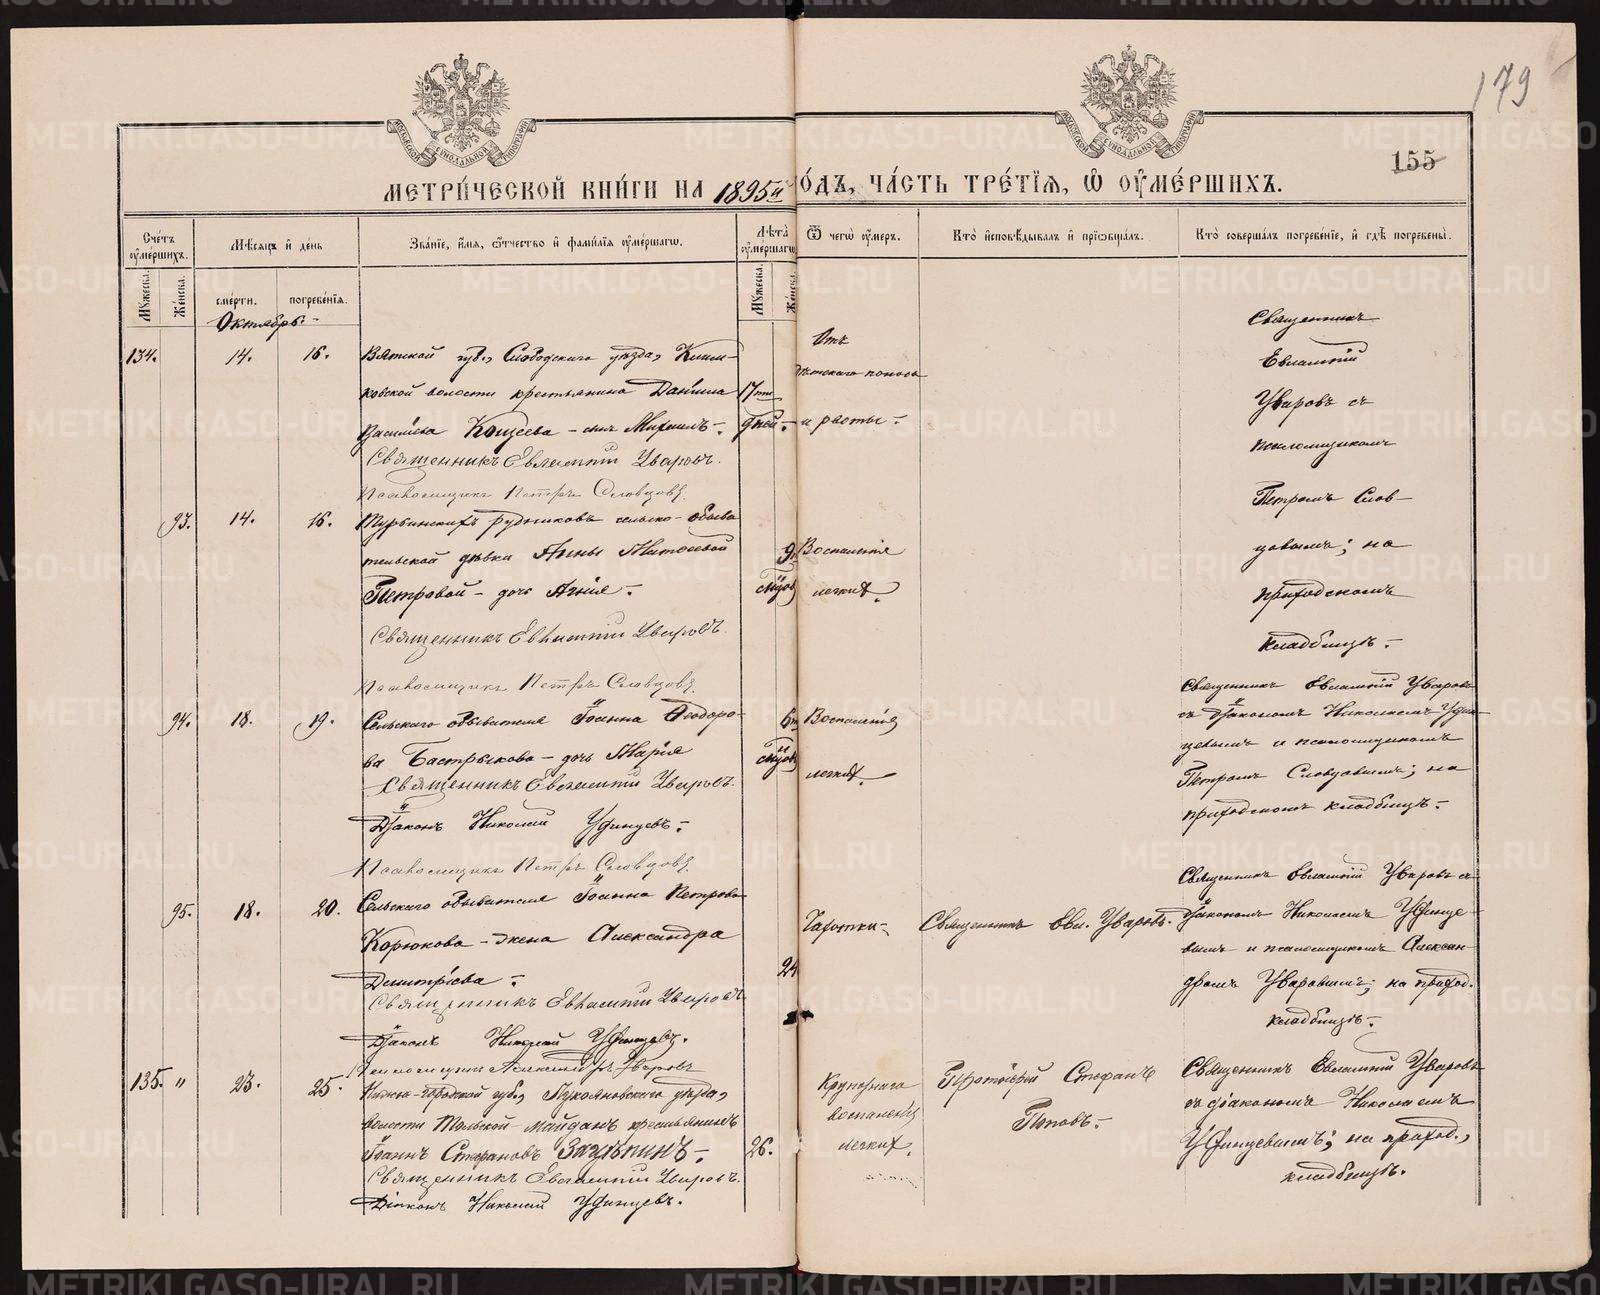 179
155
МЕТРИ́ЧЕСКОЙ КНИ́ГИ НА 1895й ГО́ДЪ, ЧА́СТЬ ТРЕ́ТІѦ, Ѡ҆ ОУ҆МЕ́РШИХЪ.
Сче́тъ оу҆ме́ршихъ.
Мѣ́сѧцъ и҆ де́нь
Зва́нїе, и҆́мѧ, ѻ҆́тчество и҆ фами́лїѧ оу҆ме́ршагѡ.
Лѣ́та оу҆ме́ршагѡ
Ѿ чегѡ̀ оу҆́меръ.
Кто̀ и҆сповѣ́дывалъ и҆ прїѡбща́лъ.
Кто̀ соверша́лъ погребе́нїе, и҆ гдѣ̀ погребены̀.
Мꙋ́жеска.
Же́нска.
сме́рти.
погребе́нїѧ.
Мꙋ́жеска.
Же́нска.
Октябрь.
134.
14.
16.
Вятской губ., Слободскаго уѣзда, Клим-
ковской волости крестьянина Даніила
Васильева Кощеева - сынъ Михаилъ.
Священникъ Евлампій Уваровъ.
Псаломщикъ Петръ Словцовъ.
17ти
дней.
Отъ
дѣтскаго поноса
и рвоты.
Священникъ
Евлампій
Уваровъ съ
псаломщикомъ
Петромъ Слов-
цовымъ; на
приходскомъ
кладбищѣ.
93.
14.
16.
Турьинскихъ рудниковъ сельско-обыва
тельской дѣвки Анны
Петровой - дочь
Священникъ Евлампій Уваровъ.
Псаломщикъ Петръ Словцовъ.
9
Воспаленія
легкихъ.
94.
18.
19.
Сельскаго обывателя Іоанна Ѳеодоро-
ва Бастрыкова - дочь Марія
Священникъ Евлампій Уваровъ.
Діаконъ Николай Удинцевъ.
Псаломщикъ Петръ Словцовъ.
6ти
Воспаленія
легкихъ.
Священникъ Евлампій Уваровъ
съ діакономъ Николаемъ Удин-
цевымъ и псаломщикомъ
Петромъ Словцовымъ; на
приходскомъ кладбищѣ.
95.
18.
20.
Сельскаго обывателя Іоанна Петрова
Корюкова - жена Александра
Димитріева.
Священникъ Евлампій Уваровъ
Діаконъ Николай Удинцевъ.
Псаломщикъ Александръ Уваровъ
24
Чахотки
Священникъ Евл. Уваровъ.
Священникъ Евлампій Уваровъ съ
діакономъ Николаемъ Удинце-
вымъ и псаломщикомъ Алексан-
дромъ Уваровымъ; на приход.
кладбищѣ.
135.
"
23.
25.
Нижне-городской губ., Лукояновскаго уѣзда,
волости Майданъ крестьянинъ
Іоаннъ Стефановъ
Священникъ Евлампій Уваровъ.
Діаконъ Николай Удинцевъ.
26.
Крупознаго
воспаленія
легкихъ.
Протоіерей Стефанъ
Поповъ.
Священникъ Евлампій Уваровъ
съ діакономъ Николаемъ
Удинцевымъ; на приход.,
кладбищѣ.